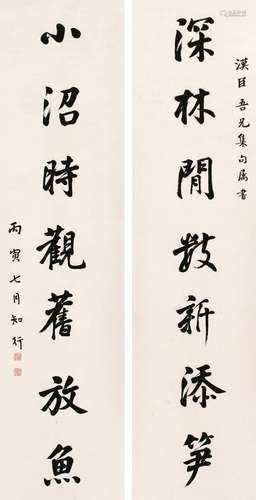 漢臣吾兄集句屬書
深林閒數新添筍
小沼時觀舊放魚
丙寅七月知行